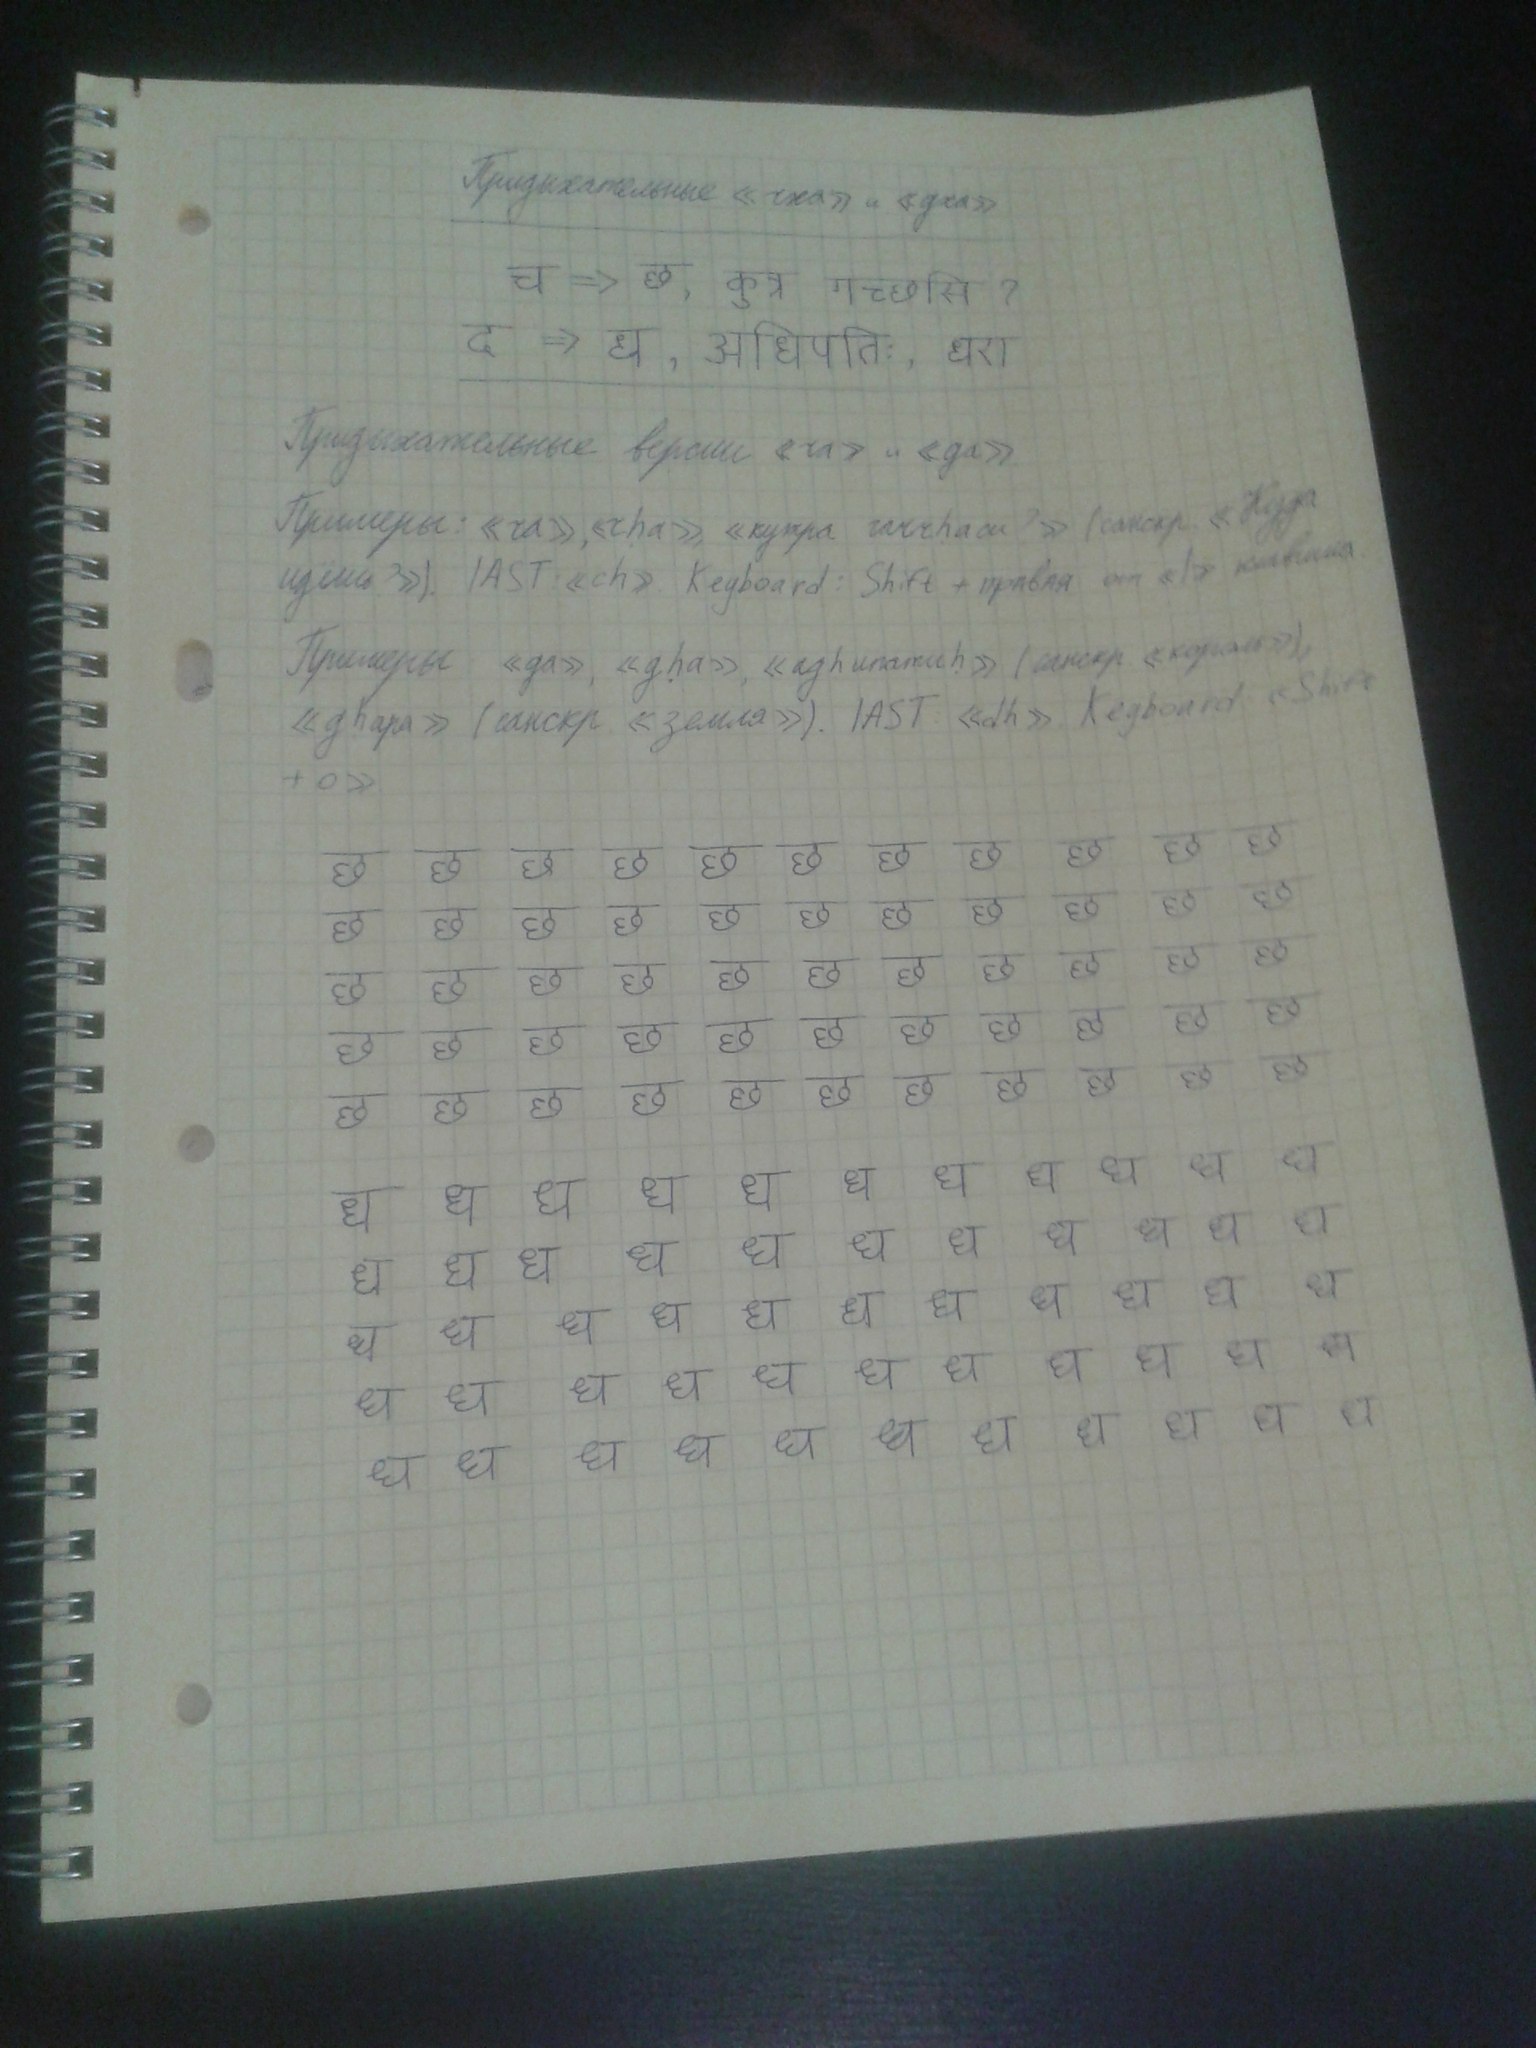 Придыхательные «чха» и «дха»
च => छ, कुत्र गच्छसि ?
द => ध, अधिपतिः, धरा
Придыхательные версии «ча» и «да»
Примеры: «ча», «чḥа», «кутра гаччhаси?» (санскр «Куда
идешь?»). IAST: «ch». Keyboard: Shift + правая от «/» клавиша
Примеры «да», «дḥа», «адhипатиḥ» (санскр «король»),
«дhара» (санскр «земля»). IAST: «dh». Keyboard «Shift
+ o»
छ छ छ छ छ छ छ छ छ छ छ
छ छ छ छ छ छ छ छ छ छ छ
छ छ छ छ छ छ छ छ छ छ छ
छ छ छ छ छ छ छ छ छ छ छ
छ छ छ छ छ छ छ छ छ छ छ
ध ध ध ध ध ध ध ध ध ध ध
ध ध ध ध ध ध ध ध ध ध ध
ध ध ध ध ध ध ध ध ध ध ध
ध ध ध ध ध ध ध ध ध ध ध
ध ध ध ध ध ध ध ध ध ध ध